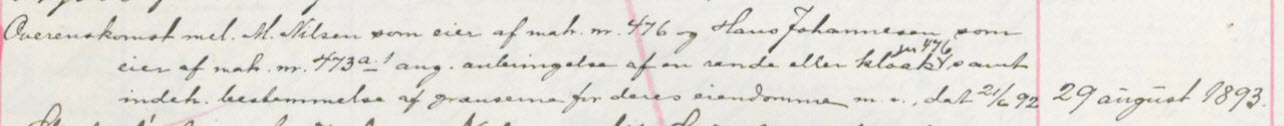 Overenskomst mel. M. Nilsen som eier af matr. nr. 476 og Hans Johannesen som
eier af matr. nr. 473a.1 ang. anbringelse af en rende eller kloak paa 476 samt
indeh. bestemmelse af grænserne for deres eiendomme m. v., dat 21/6 92 29 august 1893.